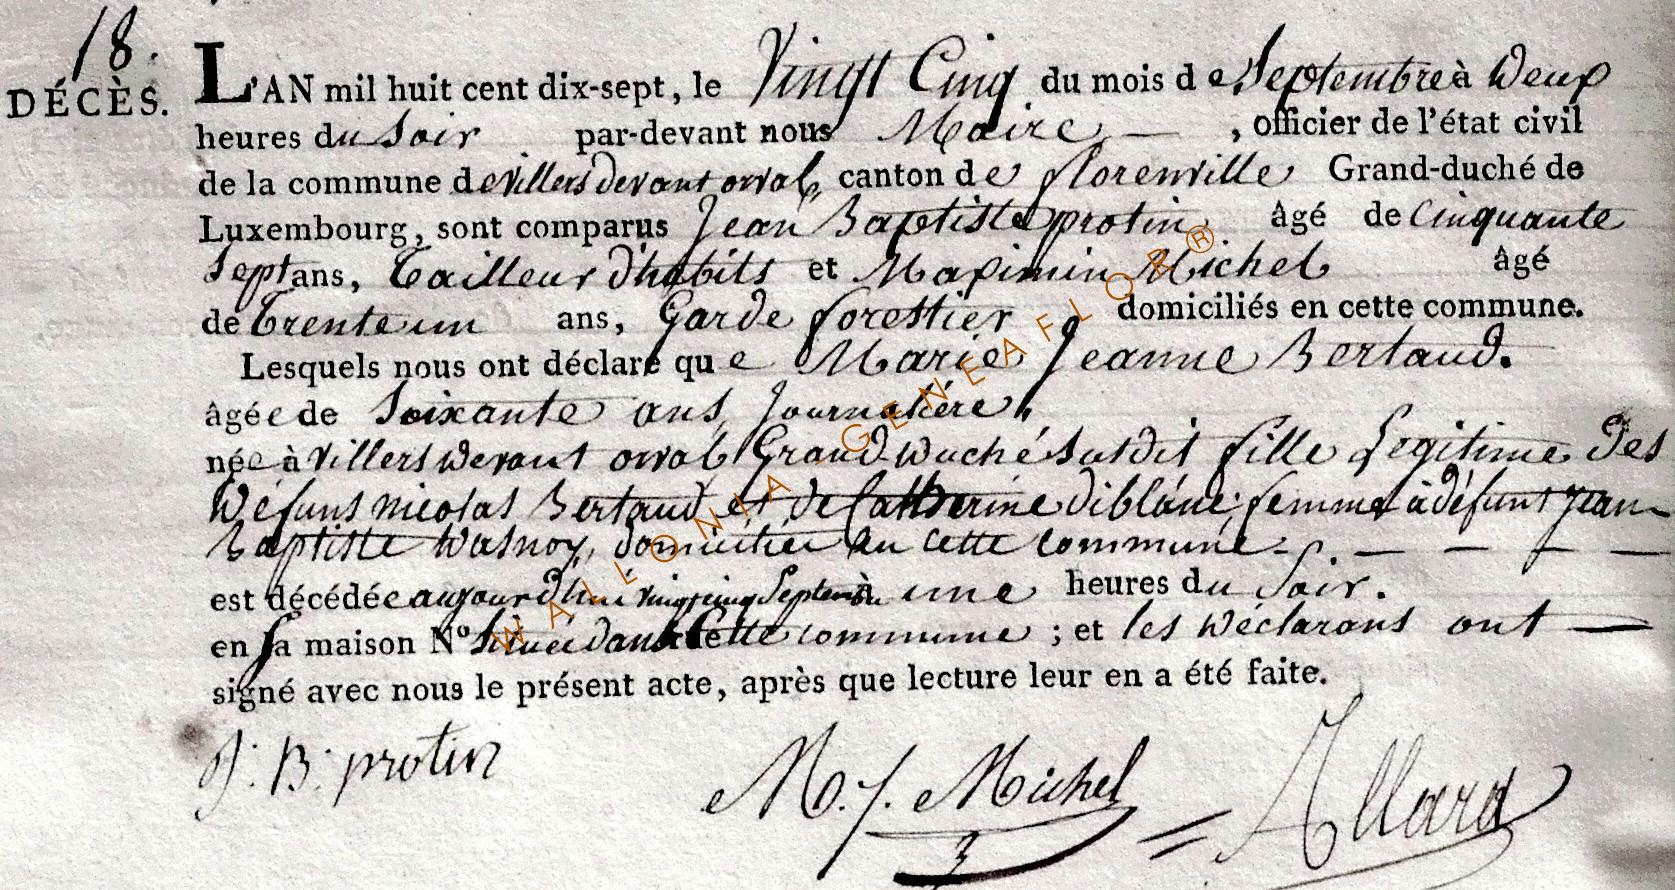 18.
DÉCÈS.
L'AN mil huit cent dix-sept, le Vingt Cinq du mois de Septembre à Deux
heures du Soir par-devant nous Maire — , officier de l'état civil
de la commune de villers devant orval, canton de florenville Grand-duché de
Luxembourg, sont comparus Jean Baptiste protin âgé de Cinquante
Sept ans, Tailleur d'habits et Maximin Michel âgé
de Trente un ans, Garde forestier domiciliés en cette commune.
Lesquels nous ont déclaré que Marie Jeanne Bertaud.
âgée de Soixante ans, Journalière,
née à villers devant orval Grand Duché Susdit fille Legitime des
Défuns nicolas Bertaud et de Catherine diblane; femme à défunt jean
Baptiste Wasnoy, domiciliée en cette commune - . — — — —
est décédée aujourd'hui vingt cinq Septembre à une heures du Soir.
en sa maison N° Située dans Cette commune ; et les Déclarans ont —
signé avec nous le présent acte, après que lecture leur en a été faite.
J: B: protin
M. J. Michel
Allard
WALLONIA GENEAFLOR®